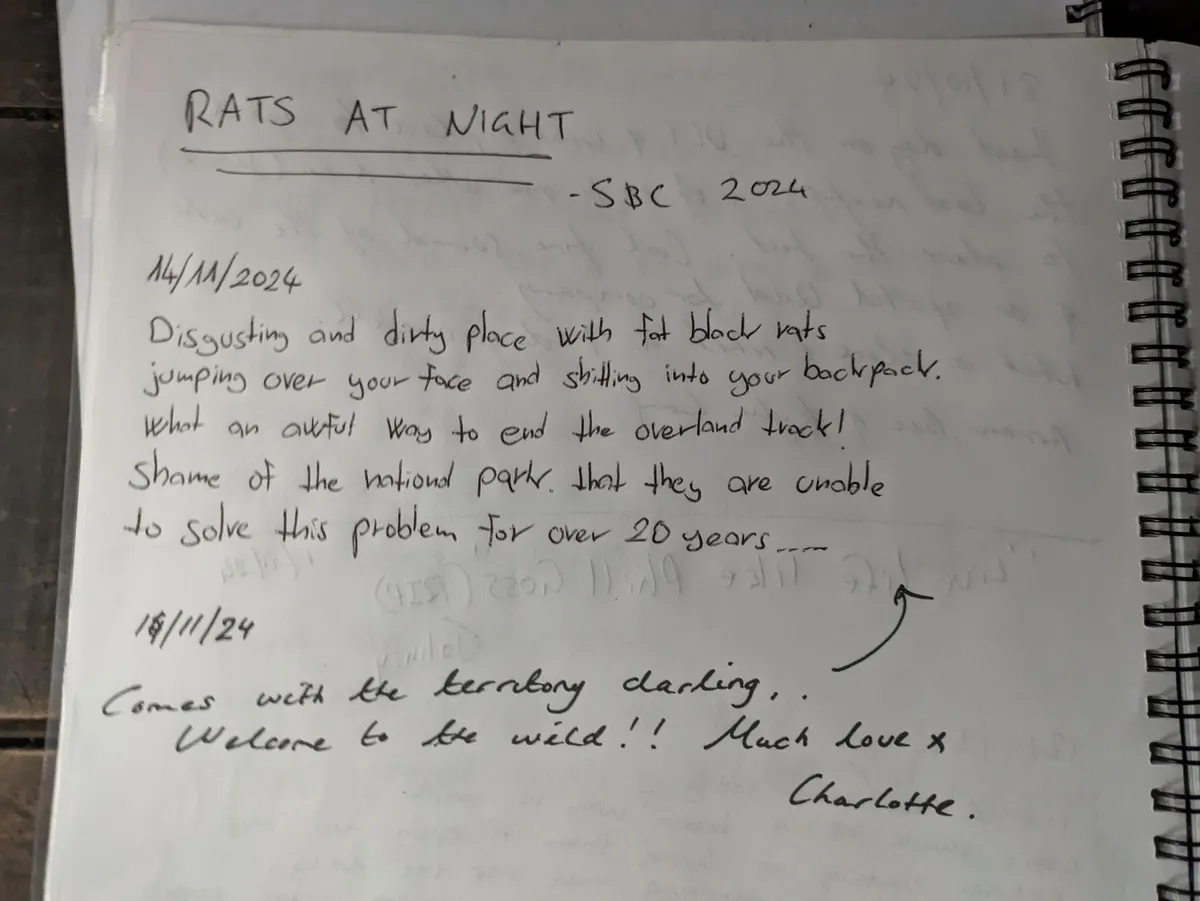 RATS AT NIGHT
- SBC 2024
14/11/2024
Disgusting and dirty place with fat black rats
jumping over your face and shitting into your backpack.
What an awful way to end the overland track!
Shame of the national park. that they are unable
to solve this problem for over 20 years.....
/11/24
Comes with the territory darling..
Welcome to the wild!! Much love x
Charlotte.